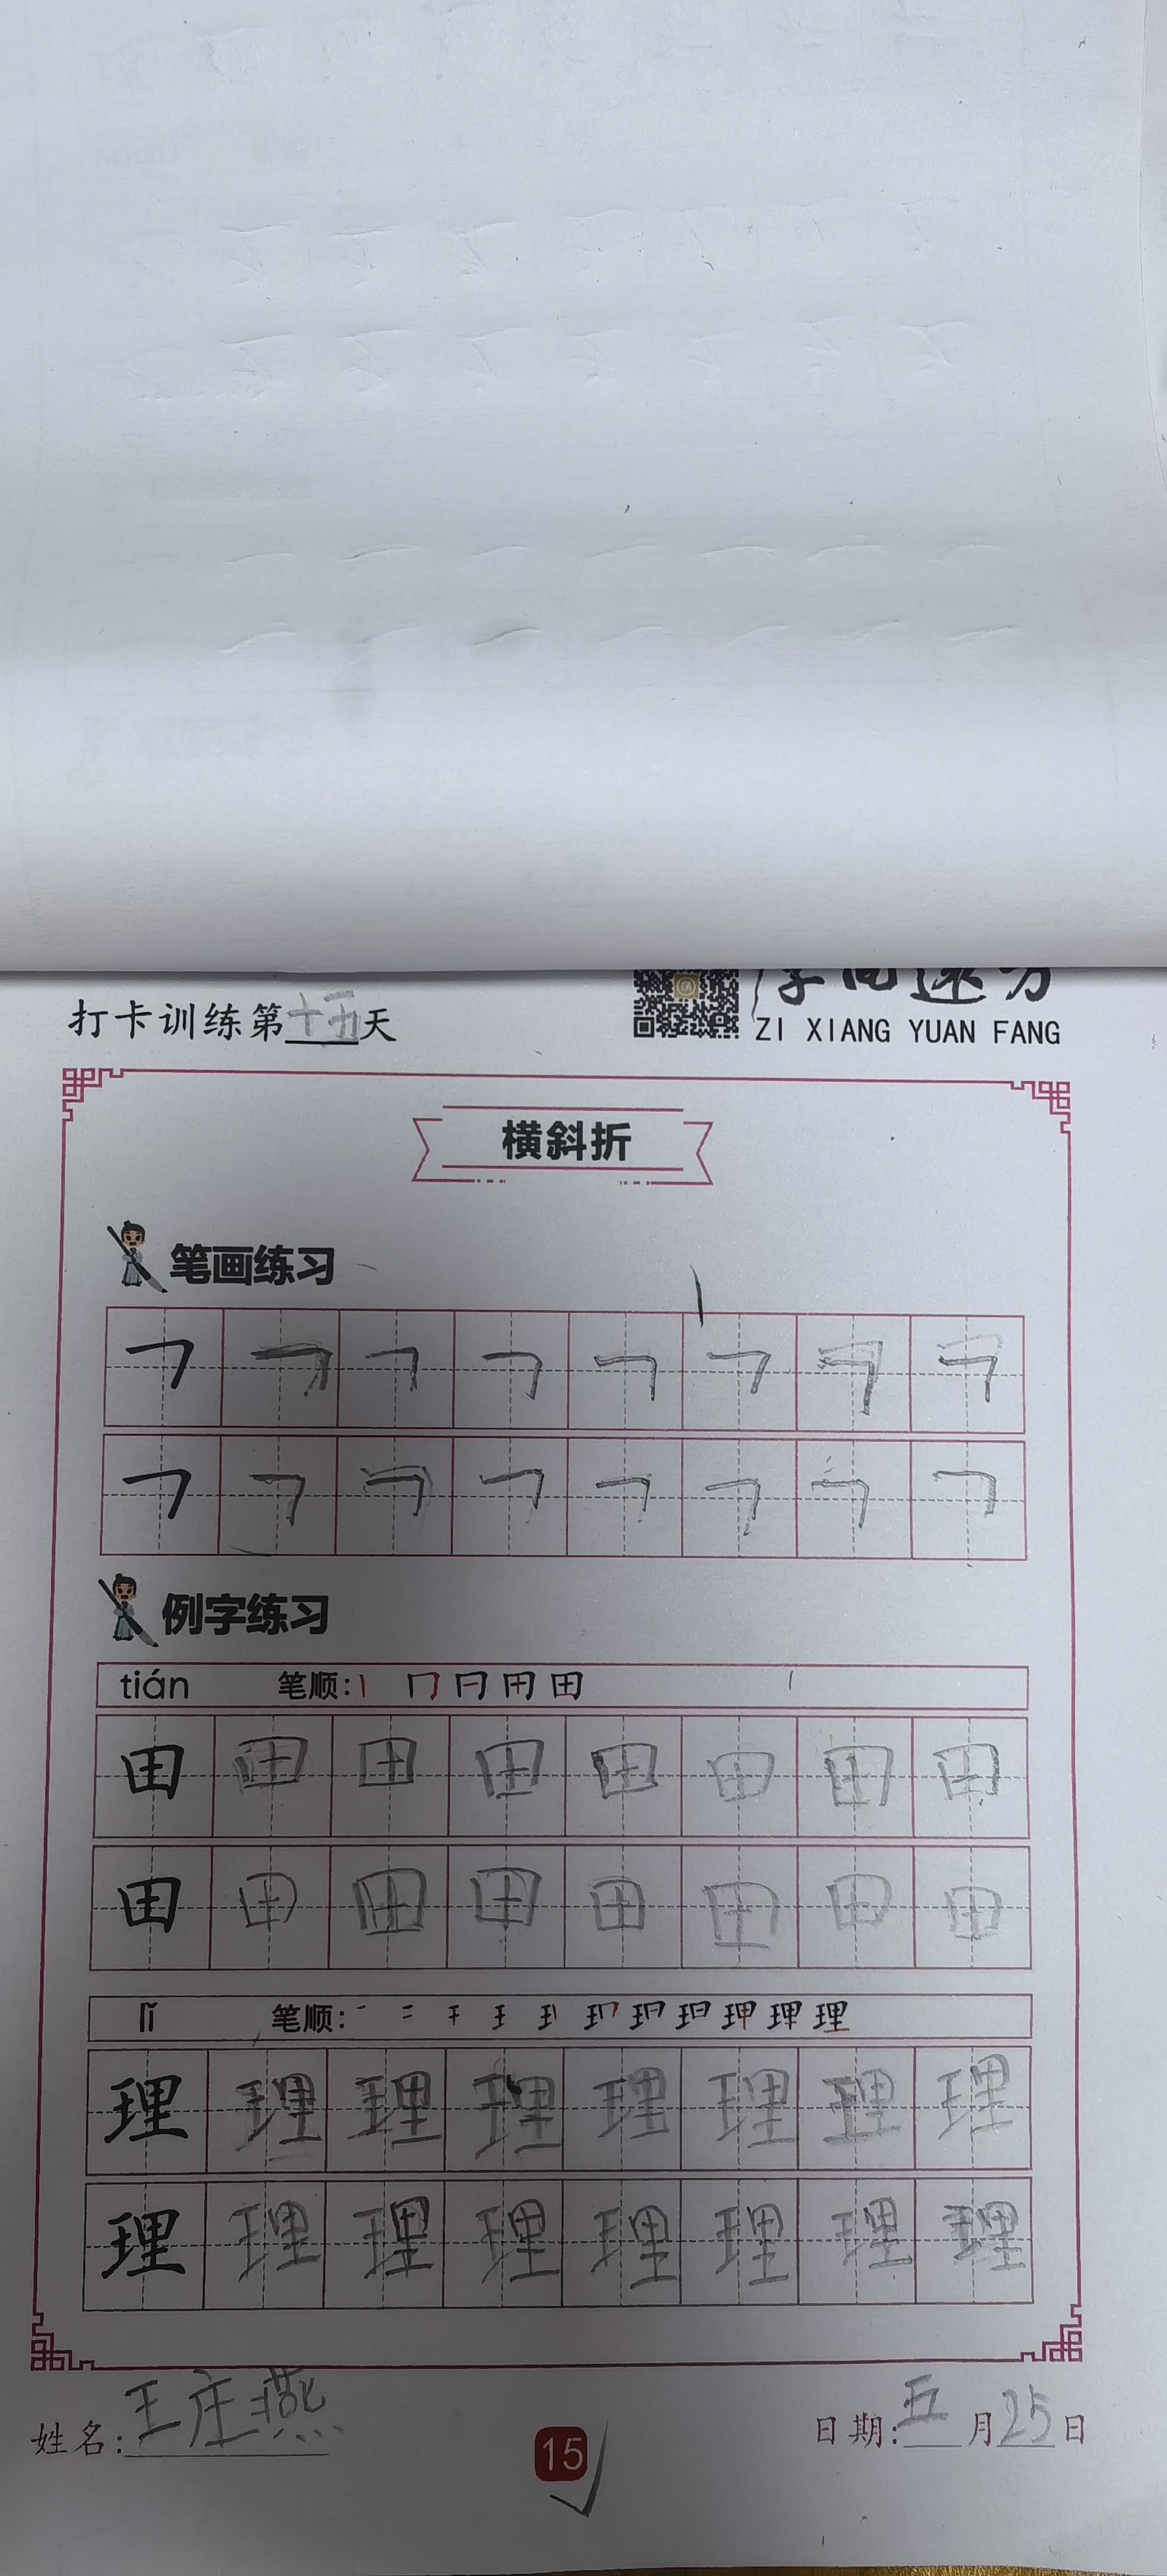 打卡训练第十五天
ZI XIANG YUAN FANG
横斜折
笔画练习
例字练习
tián 笔顺:
田 田 田 田 田 田 田 田
田 田 田 田 田 田 田 田
lǐ 笔顺:
理 理 理 理 理 理 理 理
理 理 理 理 理 理 理 理
姓名:王庄燕
15
日期:五月25日